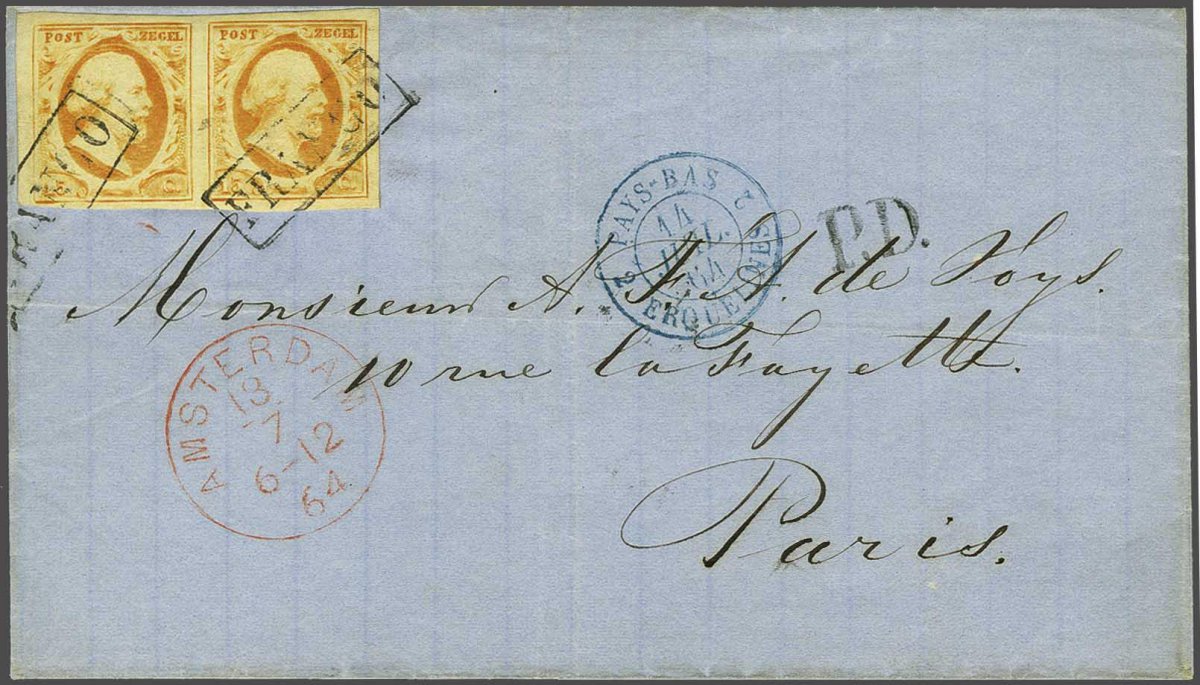 POST ZEGEL POST ZEGEL
FRANCO
FRANCO
15 C
PAYS-BAS 2
14
JUIL.
64
ERQUELINES 2
P.D.
Monsieur A. F. A. de Voys.
10 rue la Fayette.
Paris.
AMSTERDAM
13
-7
6-12
64